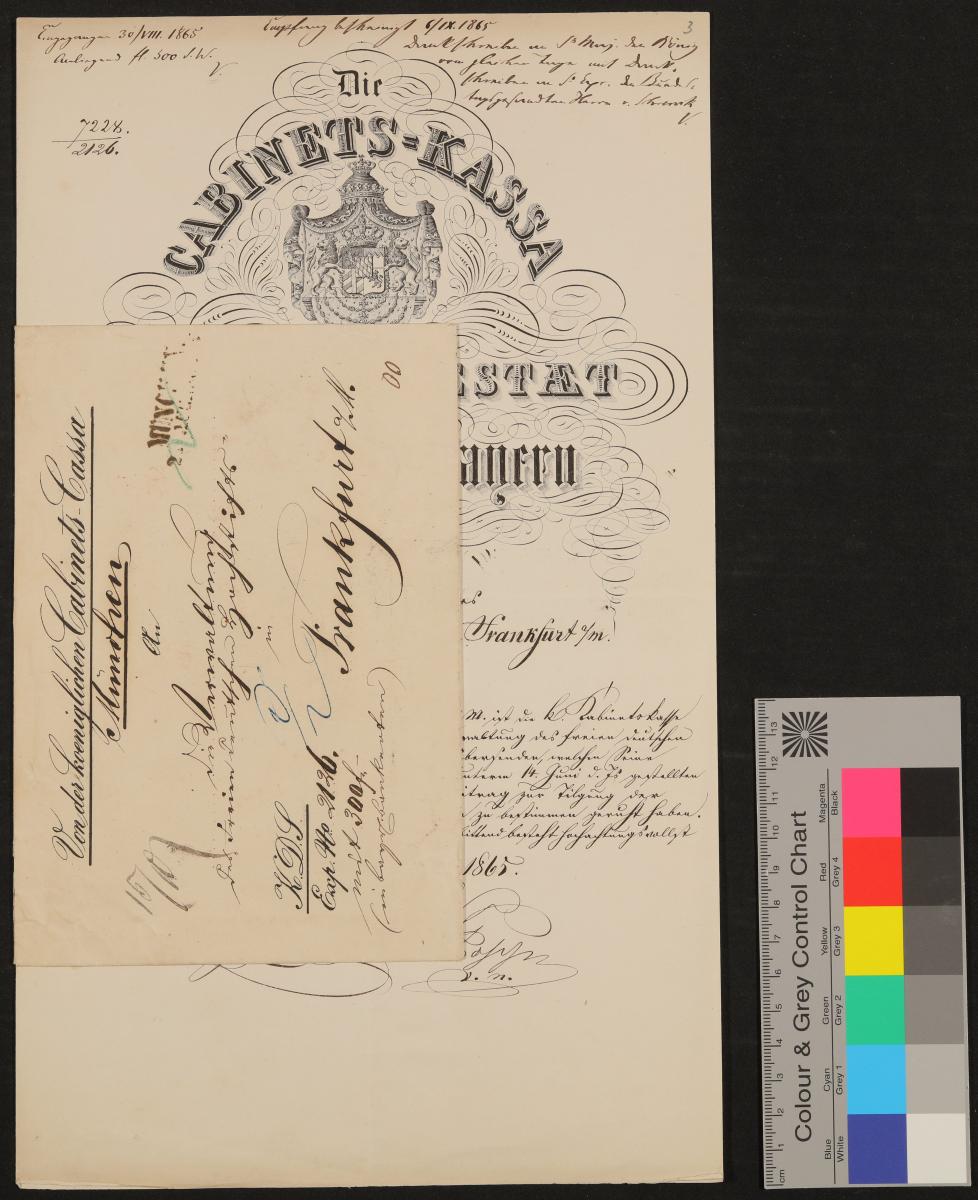 3
Eingegangen 30/VIII. 1865
Anliegend fl. 300 S. W.
Empfang bescheinigt 6/IX. 1865
Dankschreiben an Sr Maj. den König
von gleichem Tage mit Dank-
schreiben an Sr Exz. den Bundes-
tagsgesandten Herrn v. Schrenk
7224.
2126.
Die
CABINETS=KASSA
ESTÆT
ayern
es
Frankfurt a/m.
M. ist die k. Kabinetskasse
waltung des freien deutschen
übersenden, welchen Seine
unterm 14. Juni d. Js gestellten
itrag zur Tilgung der
zu bestimmen geruht haben.
bittend besteht hochachtungsvollst
1865.
Von der koeniglichen Cabinets-Cassa
München
An
die Verwaltung
des freien deutschen Hochstiftes
in
Frankfurt a/M.
K.D.S.
Exp. No 2126.
mit 300 f
MÜNC
00
Colour & Grey Control Chart
Blue Cyan Green Yellow Red Magenta
White Grey 1 Grey 2 Grey 3 Grey 4 Black
cm 1 2 3 4 5 6 7 8 9 10 11 12 13